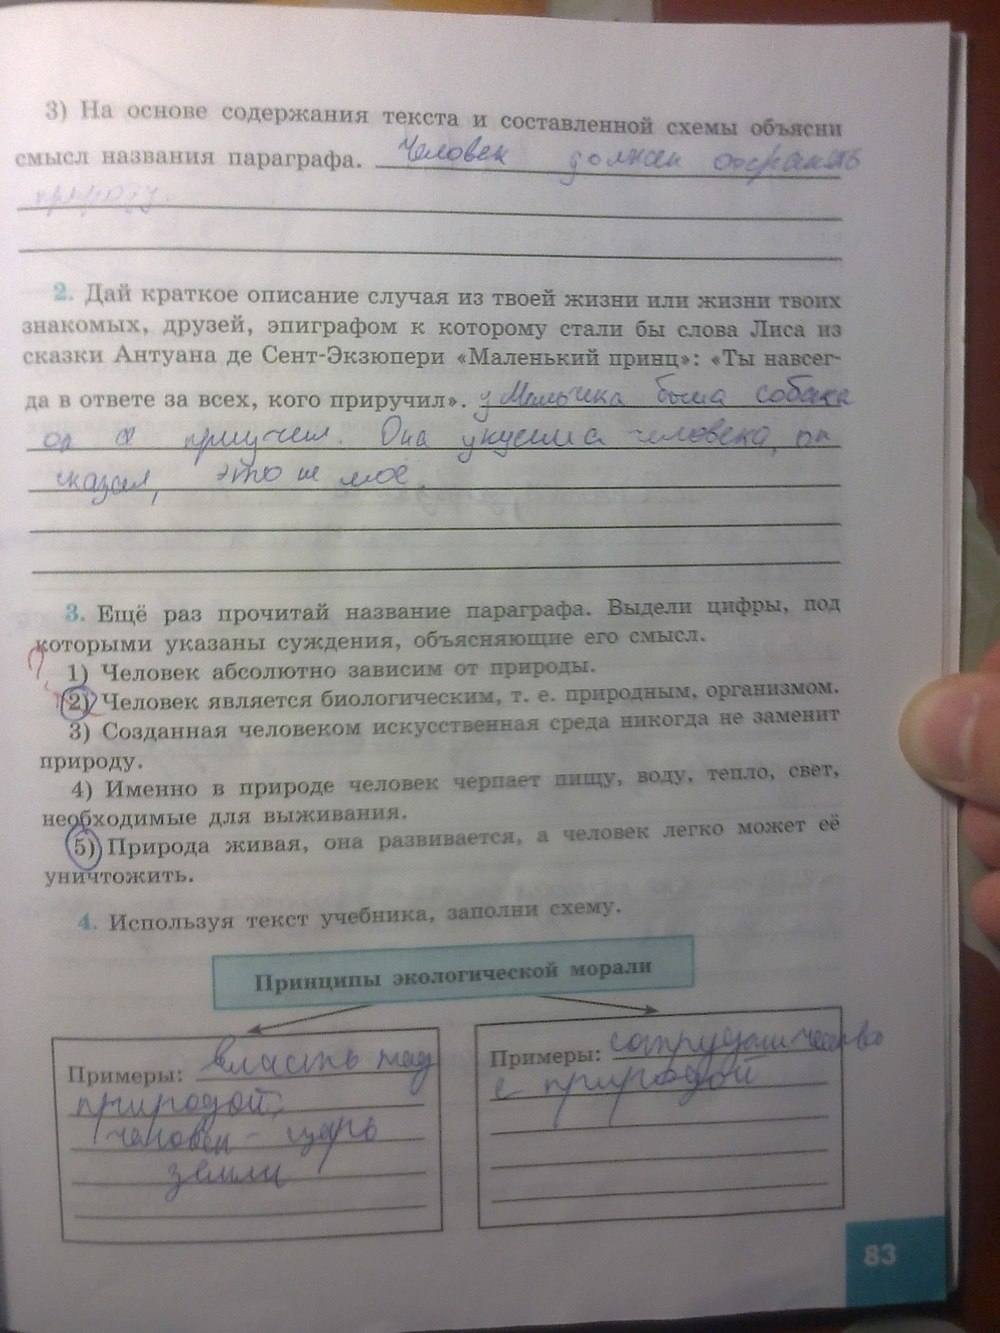 3) На основе содержания текста и составленной схемы объясни
смысл названия параграфа. Человек должен охранять
природу
2. Дай краткое описание случая из твоей жизни или жизни твоих
знакомых, друзей, эпиграфом к которому стали бы слова Лиса из
сказки Антуана де Сент-Экзюпери «Маленький принц»: «Ты навсег-
да в ответе за всех, кого приручил». у Мальчика была собака
он приучил. Она укусила человека, он
сказал, это не моё.
3. Ещё раз прочитай название параграфа. Выдели цифры, под
которыми указаны суждения, объясняющие его смысл.
1) Человек абсолютно зависим от природы.
2) Человек является биологическим, т. е. природным, организмом.
3) Созданная человеком искусственная среда никогда не заменит
природу.
4) Именно в природе человек черпает пищу, воду, тепло, свет,
необходимые для выживания.
5) Природа живая, она развивается, а человек легко может её
уничтожить.
4. Используя текст учебника, заполни схему.
Принципы экологической морали
Примеры: власть над
природой,
человек - царь
земли
Примеры: сотрудничество
с природой
83